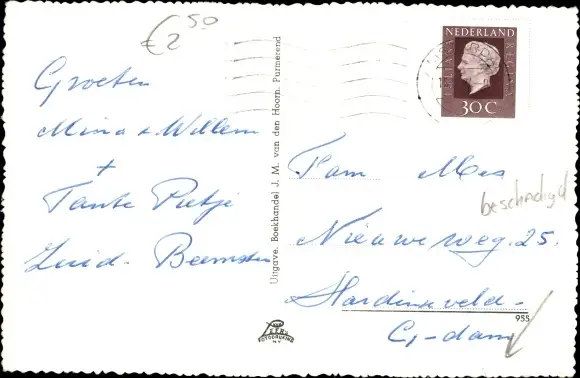 €2 50
Groeten
Mina + Willem
+
Tante Pietje
Zuid-Beemster
Uitgave. Boekhandel J. M. van den Hoorn. Purmerend
NEDERLAND
30C
Fam Mes
beschadigd
Nieuweweg. 25.
Hardinxveld-
G-dam
955
FOTODRUKKERIJ